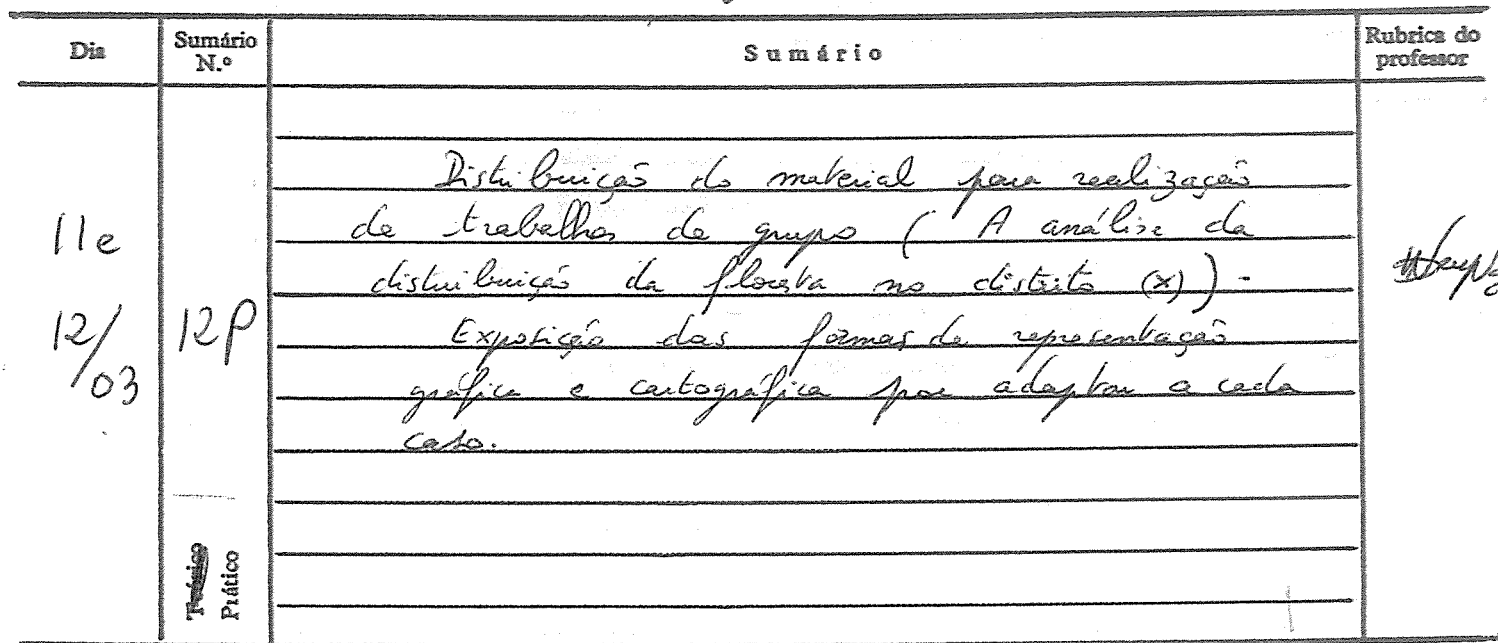 Dia
Sumário
N.º
Sumário
Rubrica do
professor
11 e
12/
03
12P
Distribuição do material para realização
de trabalhos de grupo ( A análise da
distribuição da floresta no distrito (x) ) -
Exposição das formas de representação
gráfica e cartográfica por adaptar a cada
caso.
Teórico
Prático